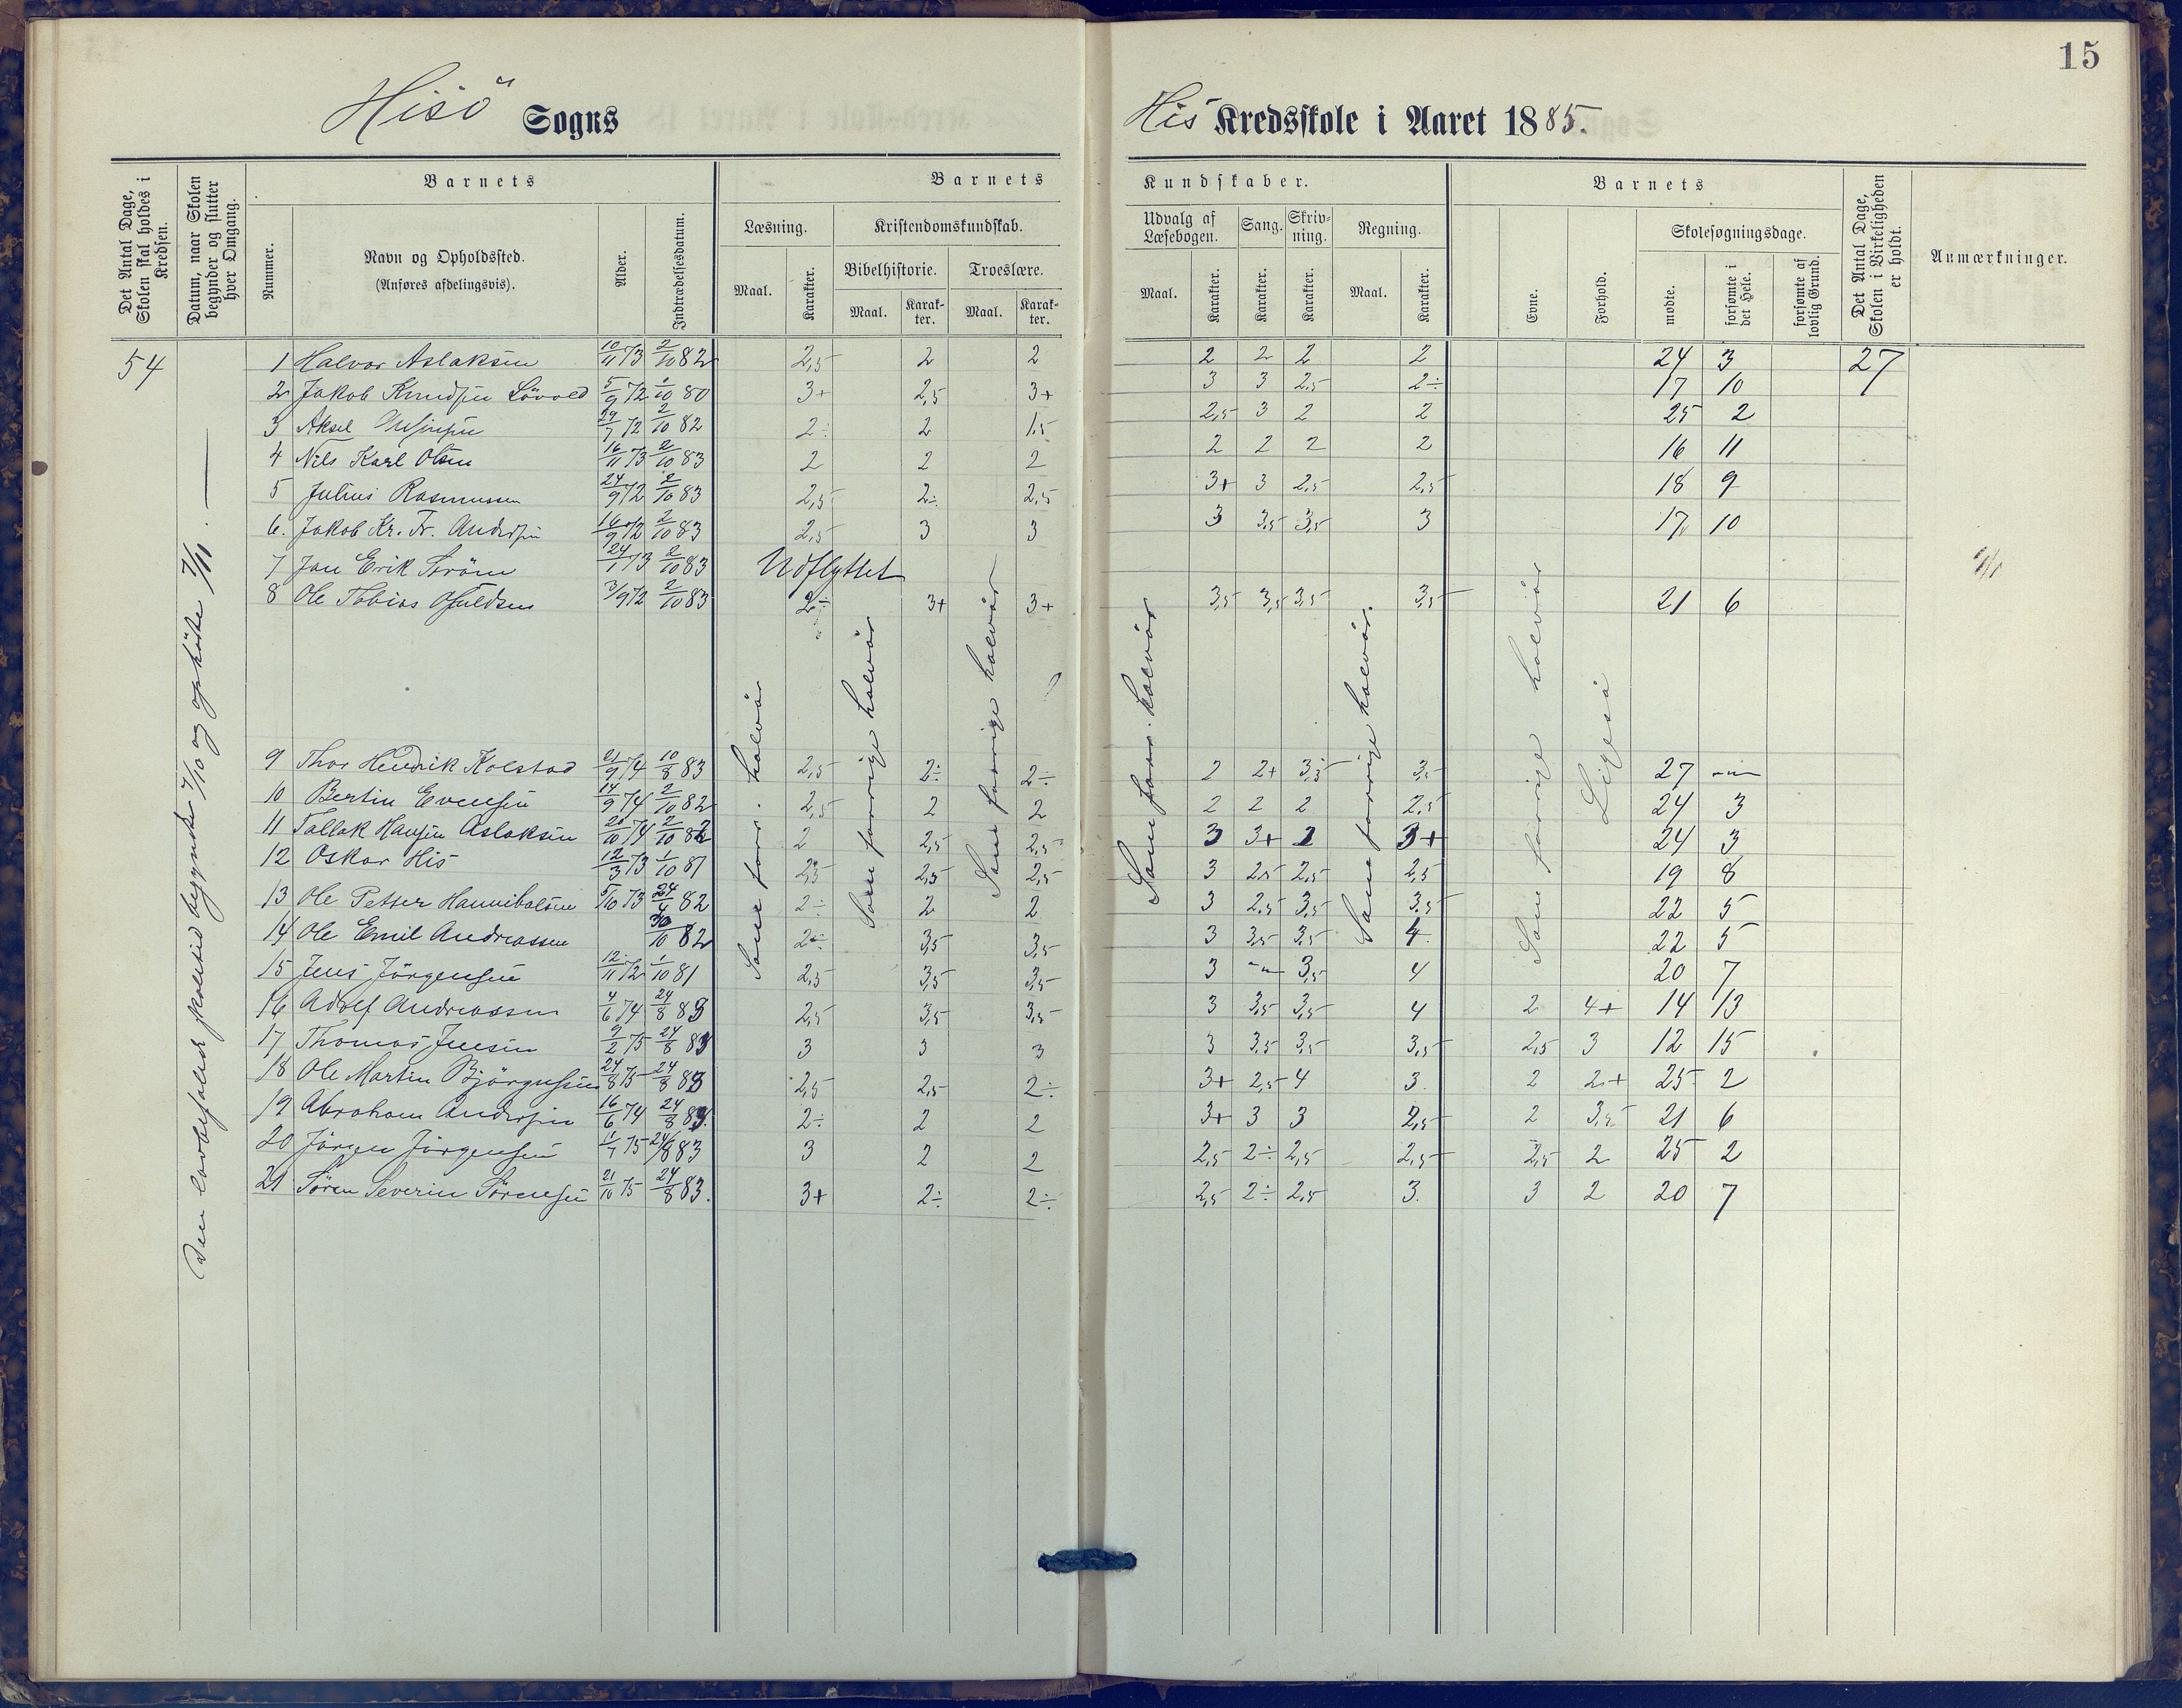 15
Hisö Sogns
His Kredsskole i Aaret 1885.
Det Antal Dage, Skolen skal holdes i Kredsen.
Datum, naar Skolen begynder og slutter hver Omgang.
Barnets
Nummer.
Navn og Opholdssted.
(Anføres afdelingsvis).
Alder.
Indtrædelsesdatum.
Barnets
Læsning.
Maal.
Karakter.
Kristendomskundskab.
Bibelhistorie.
Maal.
Karakter.
Troeslære.
Maal.
Karakter.
Kundskaber.
Udvalg af Læsebogen.
Maal.
Karakter.
Sang.
Karakter.
Skrivning.
Karakter.
Regning.
Maal.
Karakter.
Barnets
Evne.
Forhold.
Skolesøgningsdage.
mødte.
forsømte i det Hele.
forsømte af lovlig Grund.
Det Antal Dage, Skolen i Virkeligheden er holdt.
Anmærkninger.
54
Den lovbefalede skoletid begyndte 7/10 og ophörte 7/11.
Som forr. halvår
Som forrige halvår
Som forrige halvår
Som forr. halvår
Som forrige halvår
Som forrige halvår
Ligeså
1 Halvor Aslaksen 10/11 73 2/10 82 2,5 2 2 2 2 2 2 24 3 27
2 Jakob Knudsen Lövold 5/9 72 1/10 80 3+ 2,5 3+ 3 3 2,5 2÷ 17 10
3 Aksel 29/7 72 2/10 82 2÷ 2 1,5 2,5 3 2 2 25 2
4 Nils Karl Olsen 16/11 73 2/10 83 2 2 2 2 2 2 2 16 11
5 Julius Rasmussen 24/9 72 2/10 83 2,5 2÷ 2,5 3+ 3 2,5 2,5 18 9
6. Jakob Kr. Fr. Andersen 16/9 72 2/10 83 2,5 3 3 3 3,5 3,5 3 17 10
7 Jan Erik Ström 24/1 73 2/10 83 Udflyttet
8 Ole Tobias Osuldsen 3/9 72 2/10 83 2÷ 3+ 3+ 3,5 3,5 3,5 3,5 21 6
9 Thor Hendrik Kolstad 21/9 74 10/8 83 2,5 2÷ 2÷ 2 2+ 3,5 3,5 27 -"-
10 Bertin Evensen 14/9 74 2/10 82 2,5 2 2 2 2 2 2,5 24 3
11 Tallak Hansen Aslaksen 20/10 74 2/10 82 2 2,5 2,5 3 3+ 2 3+ 24 3
12 Oskar His 12/3 73 1/10 81 2,5 2,5 2,5 3 2,5 2,5 2,5 19 8
13 Ole Petter Hannibalsen 5/10 73 24/4 82 2÷ 2 2 3 2,5 3,5 3,5 22 5
14 Ole Emil Andreassen 30/10 82 2÷ 3,5 3,5 3 3,5 3,5 4. 22 5
15 Jens Jörgensen 12/11 72 1/10 81 2,5 3,5 3,5 3 -"- 3,5 4 20 7
16 Adolf Andreassen 4/6 74 24/8 83 2,5 3,5 3,5 3 3,5 3,5 4 2 4+ 14 13
17 Thomas Jensen 9/2 75 24/8 83 3 3 3 3 3,5 3,5 3,5 2,5 3 12 15
18 Ole Martin Björgusen 24/8 75 24/8 83 2,5 2,5 2÷ 3+ 2,5 4 3. 2 2+ 25 2
19 Abraham Andersen 16/6 74 24/8 83. 2÷ 2 2 3+ 3 3 2,5 2 3,5 21 6
20 Jörgen Jörgensen 11/7 75 24/8 83 3 2 2 2,5 2÷ 2,5 2,5 2,5 2 25 2
21 Sören Severin Sörensen 21/10 75 24/8 83. 3+ 2÷ 2÷ 2,5 2÷ 2,5 3. 3 2 20 7